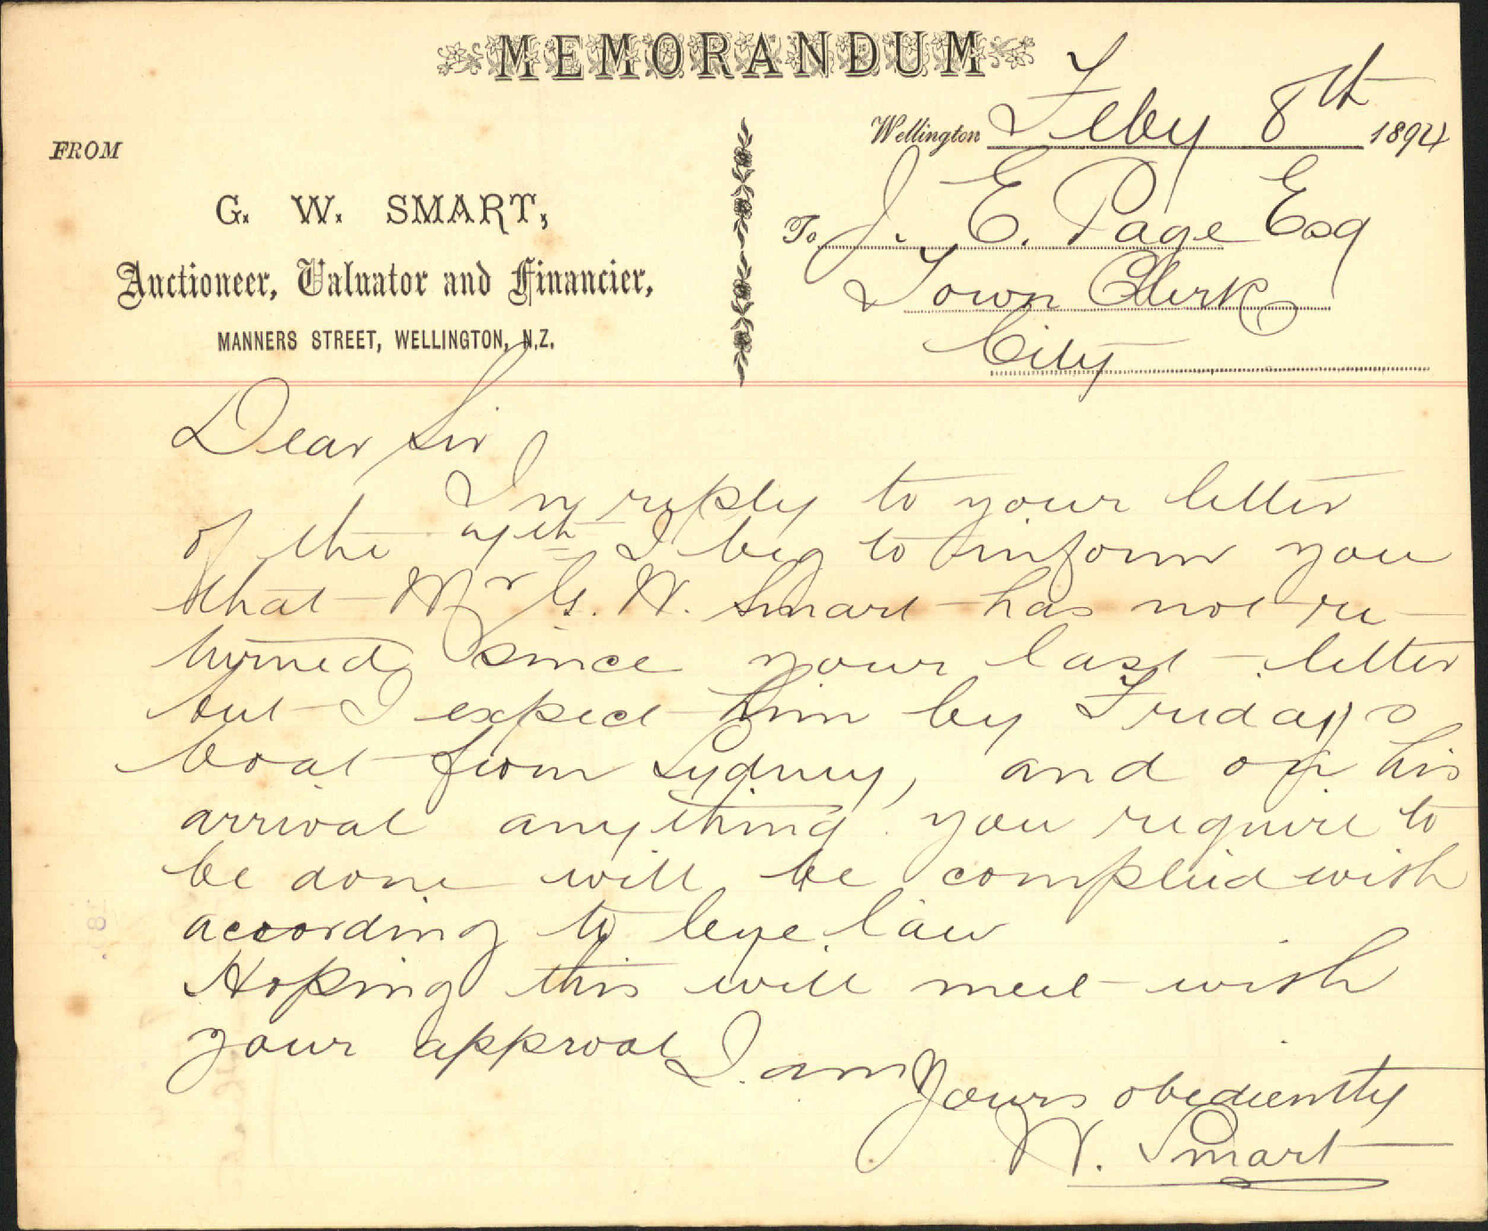 MEMORANDUM
Wellington Feby 8th 1894
FROM
G. W. SMART,
Auctioneer, Valuator and Financier,
MANNERS STREET, WELLINGTON, N.Z.
To J. E. Page Esq
Town Clerk
City
Dear Sir
In reply to your letter
of the 7th I beg to inform you
that Mr G. W. Smart has not re-
turned since your last letter
but I expect him by Fridays
boat from Sydney, and on his
arrival anything you require to
be done will be complied with
according to bye law
Hoping this will meet with
your approval I am
Yours obediently
W. Smart